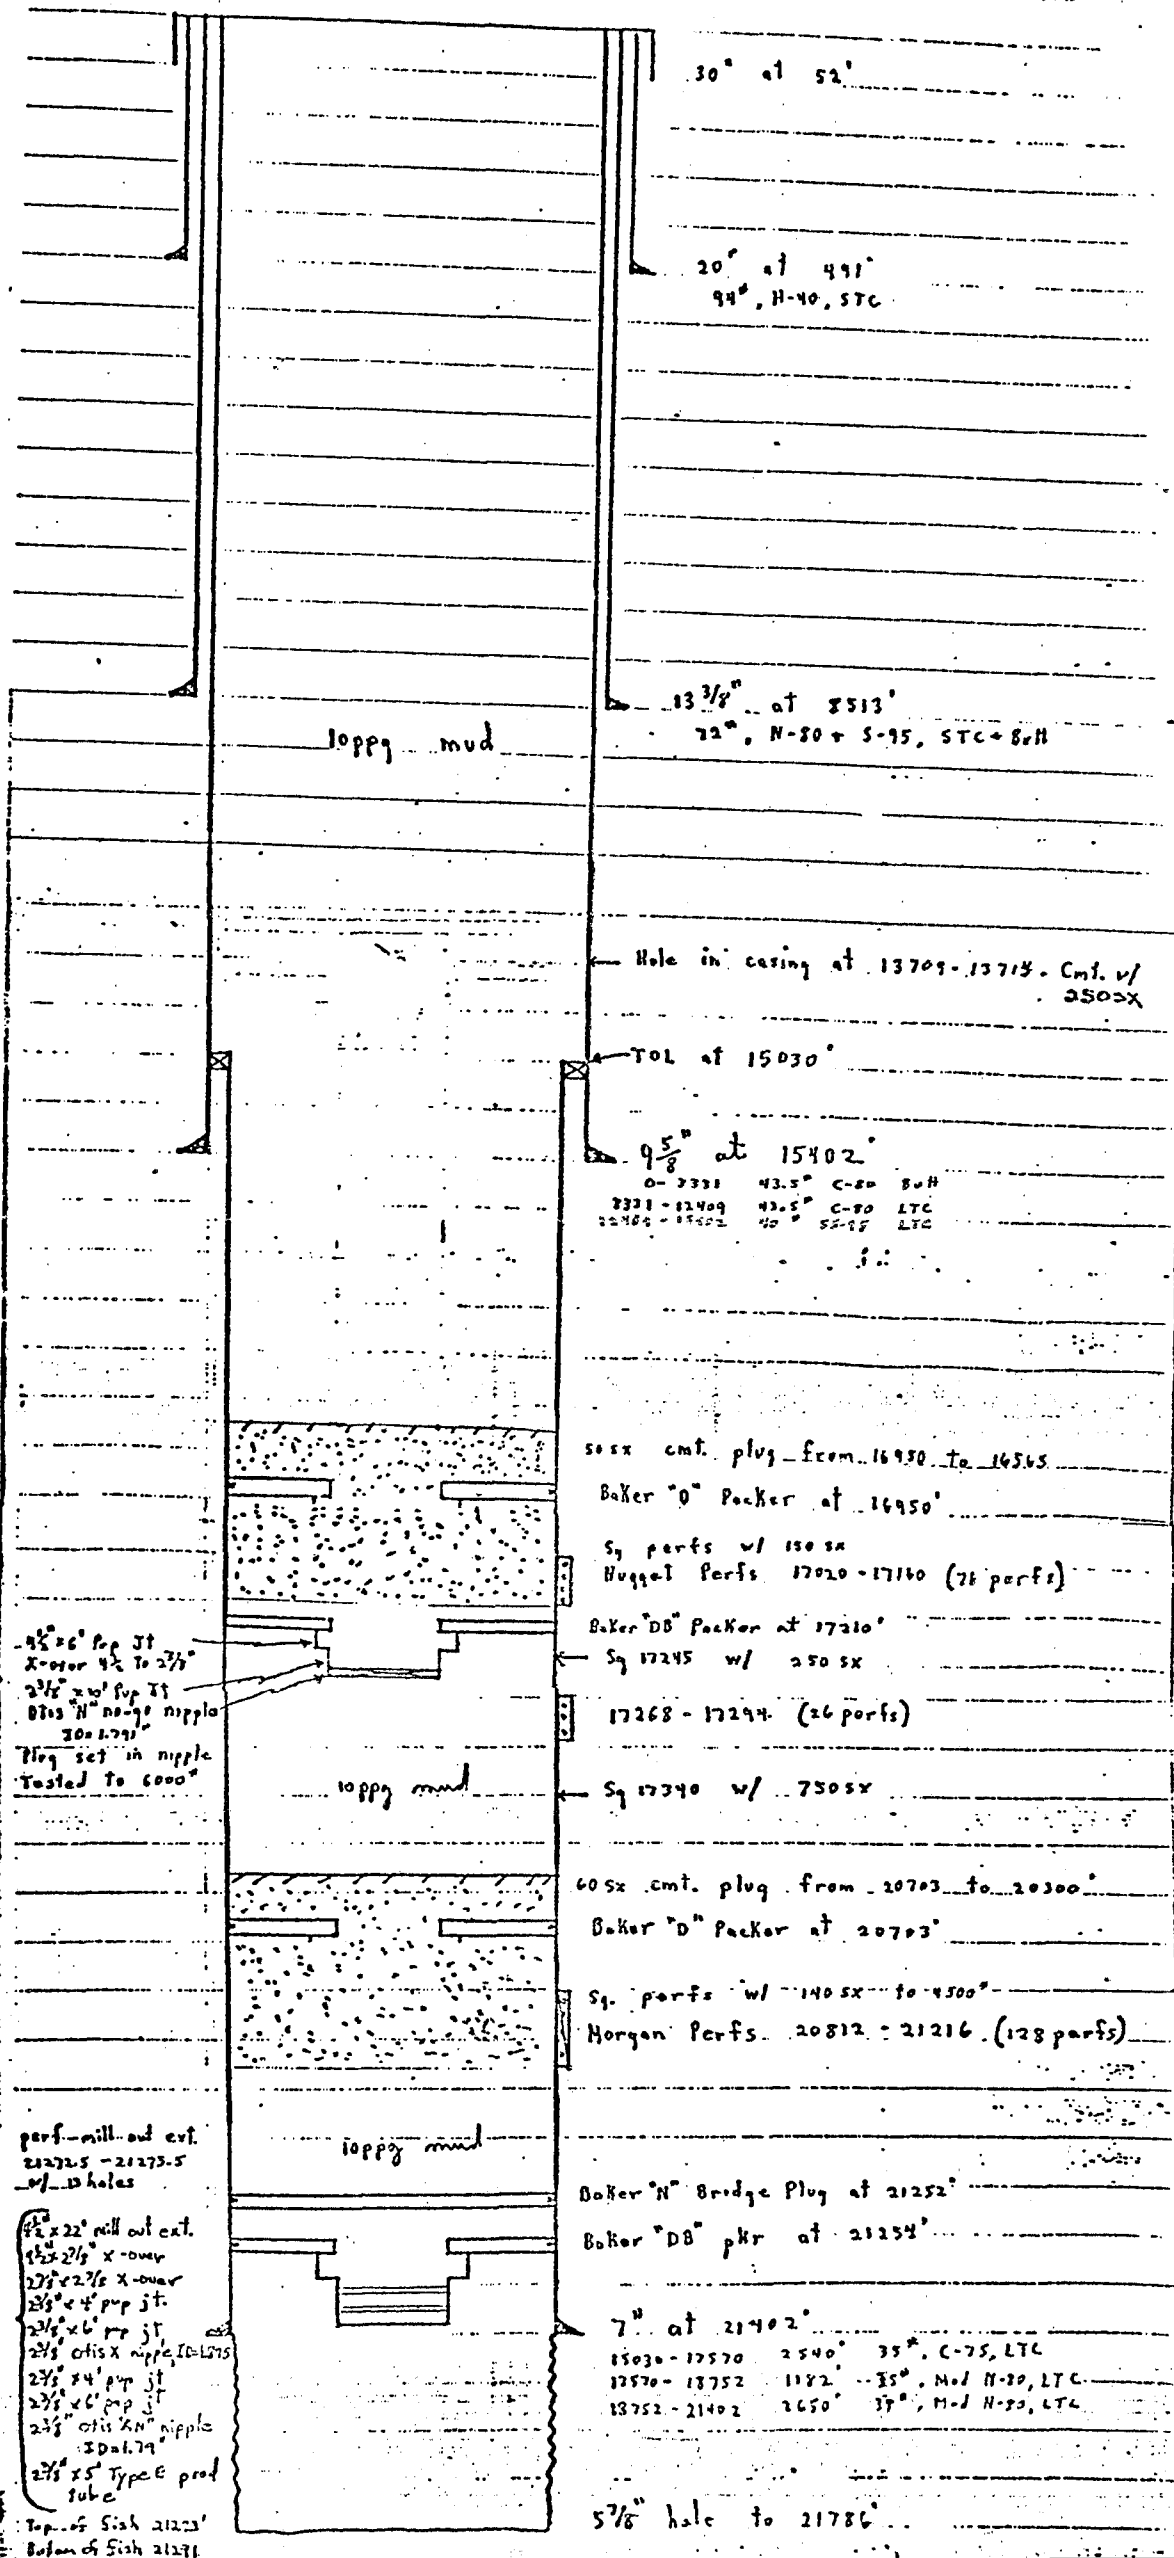 30" at 52'
20" at 491'
94#, H-40, STC
13 3/8" at 8513'
72#, N-80 + S-95, STC + Butt
10ppg mud
Hole in casing at 13709-13714. Cmt. w/
250sx
TOL at 15030'
9 5/8" at 15402'
0- 3331 43.5# C-80 Butt
3331 - 12409 43.5# C-80 LTC
12409 - 15402 40# SS-95 LTC
50sx cmt. plug from 16950 to 16565
Baker "D" Packer at 16950'
Sq perfs w/ 150 sx
Nugget Perfs 17020 - 17160 (76 perfs)
Baker "DB" Packer at 17210'
4 1/2" x 6' Pup Jt
X-over 4 1/2 To 2 3/8"
2 3/8" x 10' Pup Jt
Otis "N" no-go nipple
ID=1.791"
Plug set in nipple
Tested to 6000#
Sq 17245 w/ 250 sx
17268 - 17294 (26 perfs)
10ppg mud
Sq 17340 w/ 750 sx
60 sx cmt. plug from 20703 to 20300'
Baker "D" Packer at 20703'
Sq. perfs w/ 140 sx to 4500#
Morgan Perfs 20812 - 21216 (128 perfs)
perf mill out ext.
21272.5 - 21273.5
w/ 13 holes
10ppg mud
Baker "N" Bridge Plug at 21252'
Baker "DB" pkr at 21254'
4 1/2" x 22' mill out ext.
4 1/2" x 2 7/8" x-over
2 7/8" x 2 3/8 x-over
2 3/8" x 4' pup jt.
2 3/8" x 6' pup jt
2 3/8" otis X nipple, ID=1.875
2 3/8" x 4' pup jt
2 3/8" x 6' pup jt
2 3/8" otis XN" nipple
ID=1.79"
2 3/8" x 5' Type E prod
tube
Top of fish 21273'
Bottom of fish 21291
7" at 21402'
15030 - 17570 2540' 35#, C-75, LTC
17570 - 18752 1182' 35#, Mod N-80, LTC
18752 - 21402 2650' 38#, Mod N-80, LTC
5 7/8" hole to 21786'